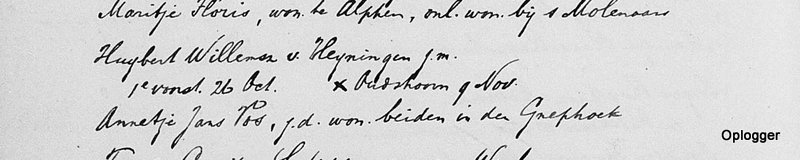 Maritje Floris, won. te Alphen, onl. won. bij s Molenaars
Huybert Willemsz v. Heyningen j.m.
1e voorst. 26 Oct. x Oudshoorn 9 Nov.
Annetje Jans Vos, j.d. won. beiden in den Gnephoek
Oplogger